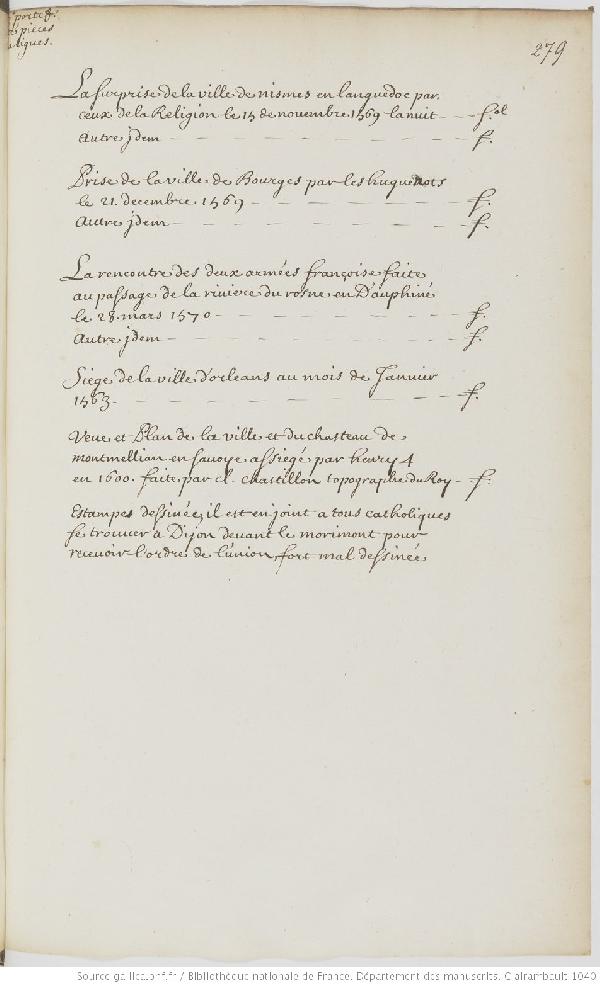 porte &
pièces
ligues.
279
La surprise de la ville de nismes en languedoc par
ceux de la Religion le 15 de novembre 1569 la nuit — — f.ol
Autre jdem — — — — — — — — f.
Prise de la ville de Bourges par les huguenots
le 21. decembre 1569 — — — — — — f.
Autre jdem — — — — — — — — f.
La rencontre des deux armées françoise faite
au passage de la riviere du rosne en Dauphiné
le 28. mars 1570 — — — — — — — f.
Autre jdem — — — — — — — — f.
Siege de la ville d'orleans au mois de Janvier
1563. — — — — — — — — — f.
Veue et Plan de la ville et du chasteau de
montmellian en savoye assiegé par henry 4
en 1600. faite par cl. chastillon topographe du Roy — f.
Estampes dessinée, il est enjoint a tous catholiques
se trouver a Dijon devant le morimont pour
recevoir l'ordre de l'union, fort mal dessinée
Source gallica.bnf.fr / Bibliothèque nationale de France. Département des manuscrits. Clairambault 1040